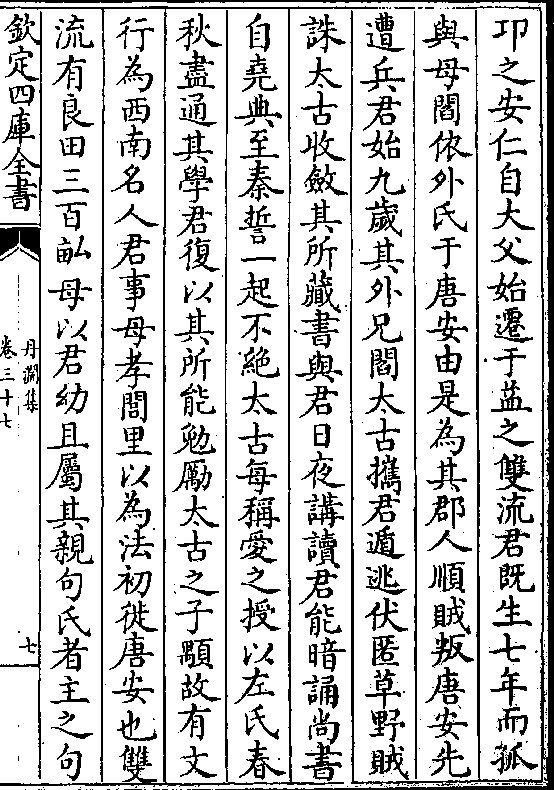 卭之安仁自大父始遷于益之雙流君既生七年而孤
與母閻依外氏于唐安由是為其郡人順賊叛唐安先
遭兵君始九歲其外兄閻太古攜君遁逃伏匿草野賊
誅太古收斂其所藏書與君日夜講讀君能暗誦尚書
自堯典至秦誓一起不絶太古每稱愛之授以左氏春
秋盡通其學君復以其所能勉厲太古之子顒故有文
行為西南名人君事母孝閭里以為法初徙唐安也雙
流有良田三百畝母以君幼且屬其親句氏者主之句
欽定四庫全書
丹淵集
卷三十七
七